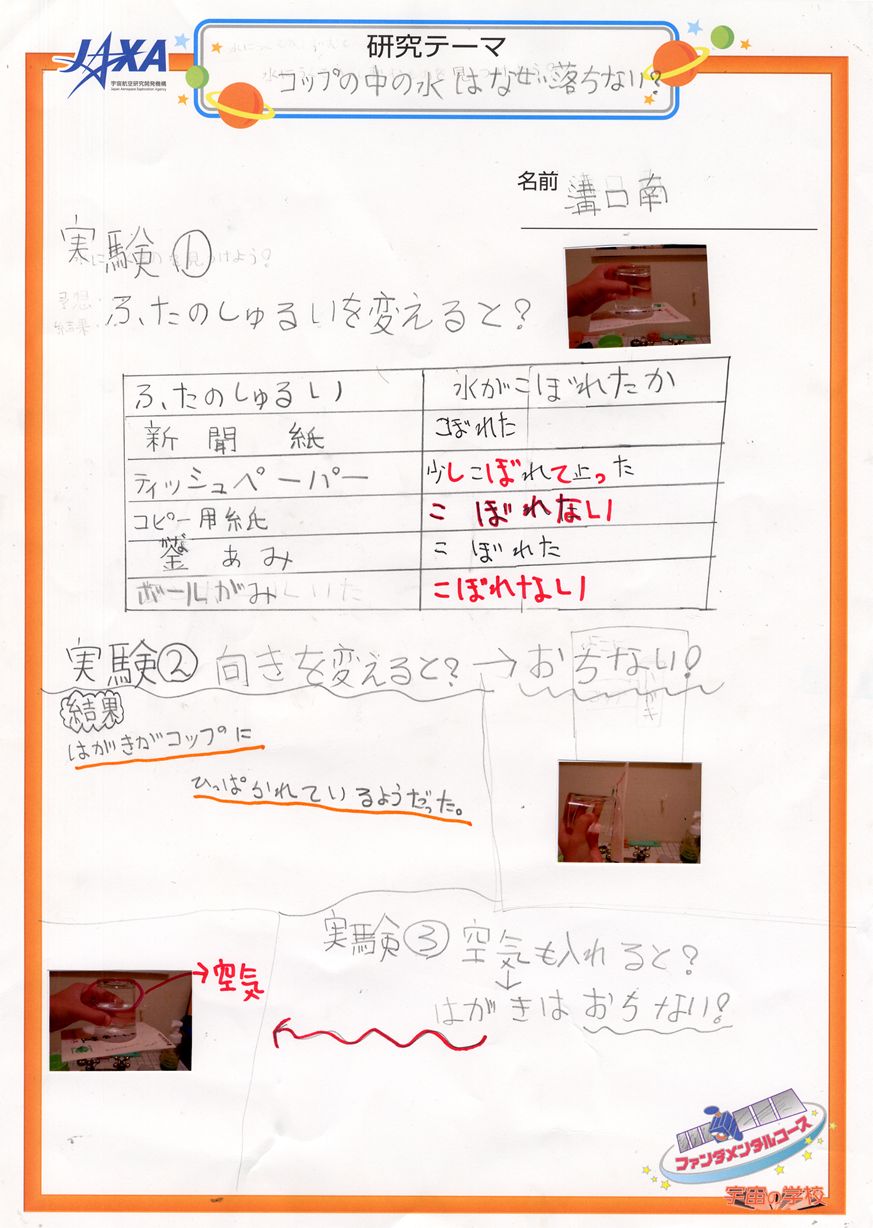 JAXA
宇宙航空研究開発機構
Japan Aerospace Exploration Agency
研究テーマ
コップの中の水はなぜ落ちない?
名前 溝口南
実験①
ふ、たのしゅるいを変えると?
ふ、たのしゅるい 水がこぼれたか
新聞紙 こぼれた
ティッシュペーパー 少しこぼれて止った
コピー用紙 こぼれない
かな
あみ こぼれた
ボールがみ こぼれない
実験② 向きを変えると?→おちない!
結果
はがきがコップに
ひっぱかれているようだった。
実験③ 空気も入れると?
→空気
↓
はがきはおちない!
ファンダメンタルコース
宇宙の学校